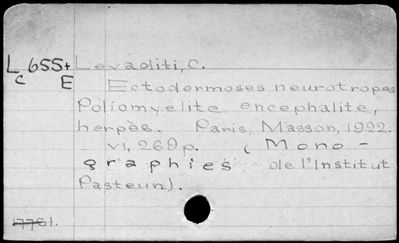 L 655+ Levaditi, C.
C E
Ectodermoses neurotropes
Poliomyélite, encéphalite,
herpès. Paris, Masson, 1922.
vi, 269p. (Mono-
graphies de l'Institut
Pasteur).
17781.